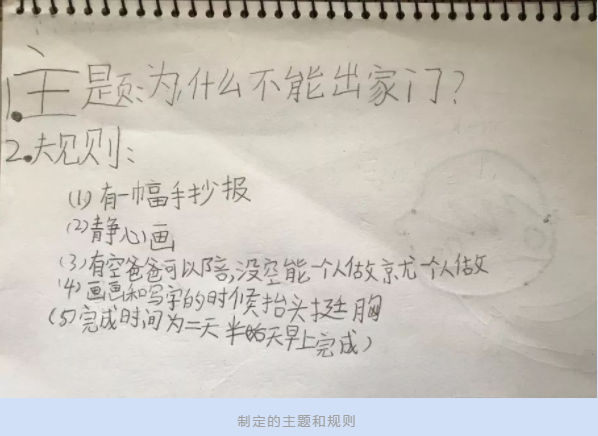 1.主题:为什么不能出家门?
2.规则:
(1)有一幅手抄报
(2)静心画
(3)有空爸爸可以陪,没空能一个人做就一个人做
(4)画画和写字的时候抬头挺胸
(5)完成时间为二天半(天早上完成)
制定的主题和规则